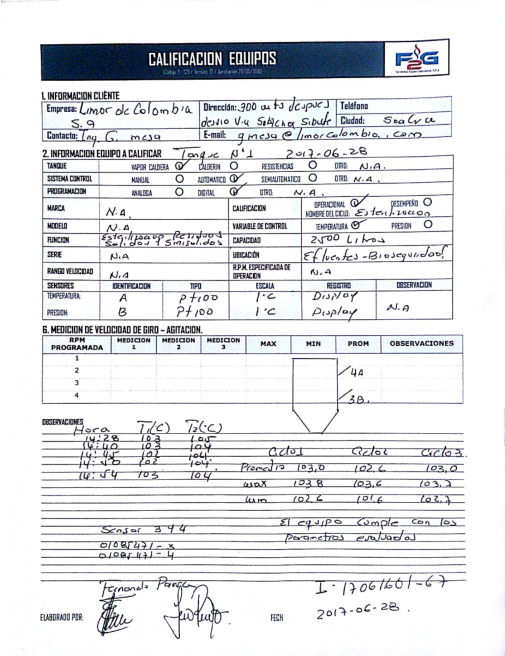 CALIFICACION EQUIPOS
F2G
1. INFORMACION CLIENTE
Empresa: Limor de Colombia S.A
Dirección: 900 mts despues desvio Via Soacha Sibate
Teléfono
Ciudad: Soacha
Contacto: Ing G. mesa
E-mail: gmesa@limorcolombia.com
2. INFORMACION EQUIPO A CALIFICAR Tanque N°1 2017-06-28
TANQUE VAPOR CALDERA CALDERIN RESISTENCIAS OTRO: N.A.
SISTEMA CONTROL MANUAL AUTOMATICO SEMIAUTOMATICO OTRO: N.A.
PROGRAMACION ANALOGA DIGITAL OTRO: N.A.
MARCA N.A CALIFICACIÓN OPERACIONAL DESEMPEÑO
NOMBRE DEL CICLO: Esterilizacion
MODELO N.A VARIABLE DE CONTROL TEMPERATURA PRESION
FUNCION Esterilizacion Residuos Solidos y Smisolidos CAPACIDAD 2500 Litros
SERIE N.A UBICACIÓN Efluentes-Bioseguridad
RANGO VELOCIDAD N.A R.P.M. ESPECIFICADA DE OPERACIÓN N.A
SENSORES IDENTIFICACION TIPO ESCALA REGISTRO OBSERVACION
TEMPERATURA: A Pt100 1°C Display
PRESION: B Pt100 1°C Display N.A
6. MEDICION DE VELOCIDAD DE GIRO - AGITACION.
RPM PROGRAMADA MEDICION 1 MEDICION 2 MEDICION 3 MAX MIN PROM OBSERVACIONES
1
2 4A
3
4 3B.
OBSERVACIONES
Hora T1(°C) T2(°C)
14:28 103 105
14:40 103 104
14:45 102 104
14:50 102 104
14:54 103 104
Ciclo1 Ciclo2 Ciclo3.
Promedio 103,0 102,6 103,0
max 103.8 103,6 103.7
mm 102,6 101,6 102.7
El equipo Cumple con los
parametros evaluados
Sensor 394
01085471-3
01085471-4
Fernando
I-17061601-67
ELABORADO POR:
FECH 2017-06-28.